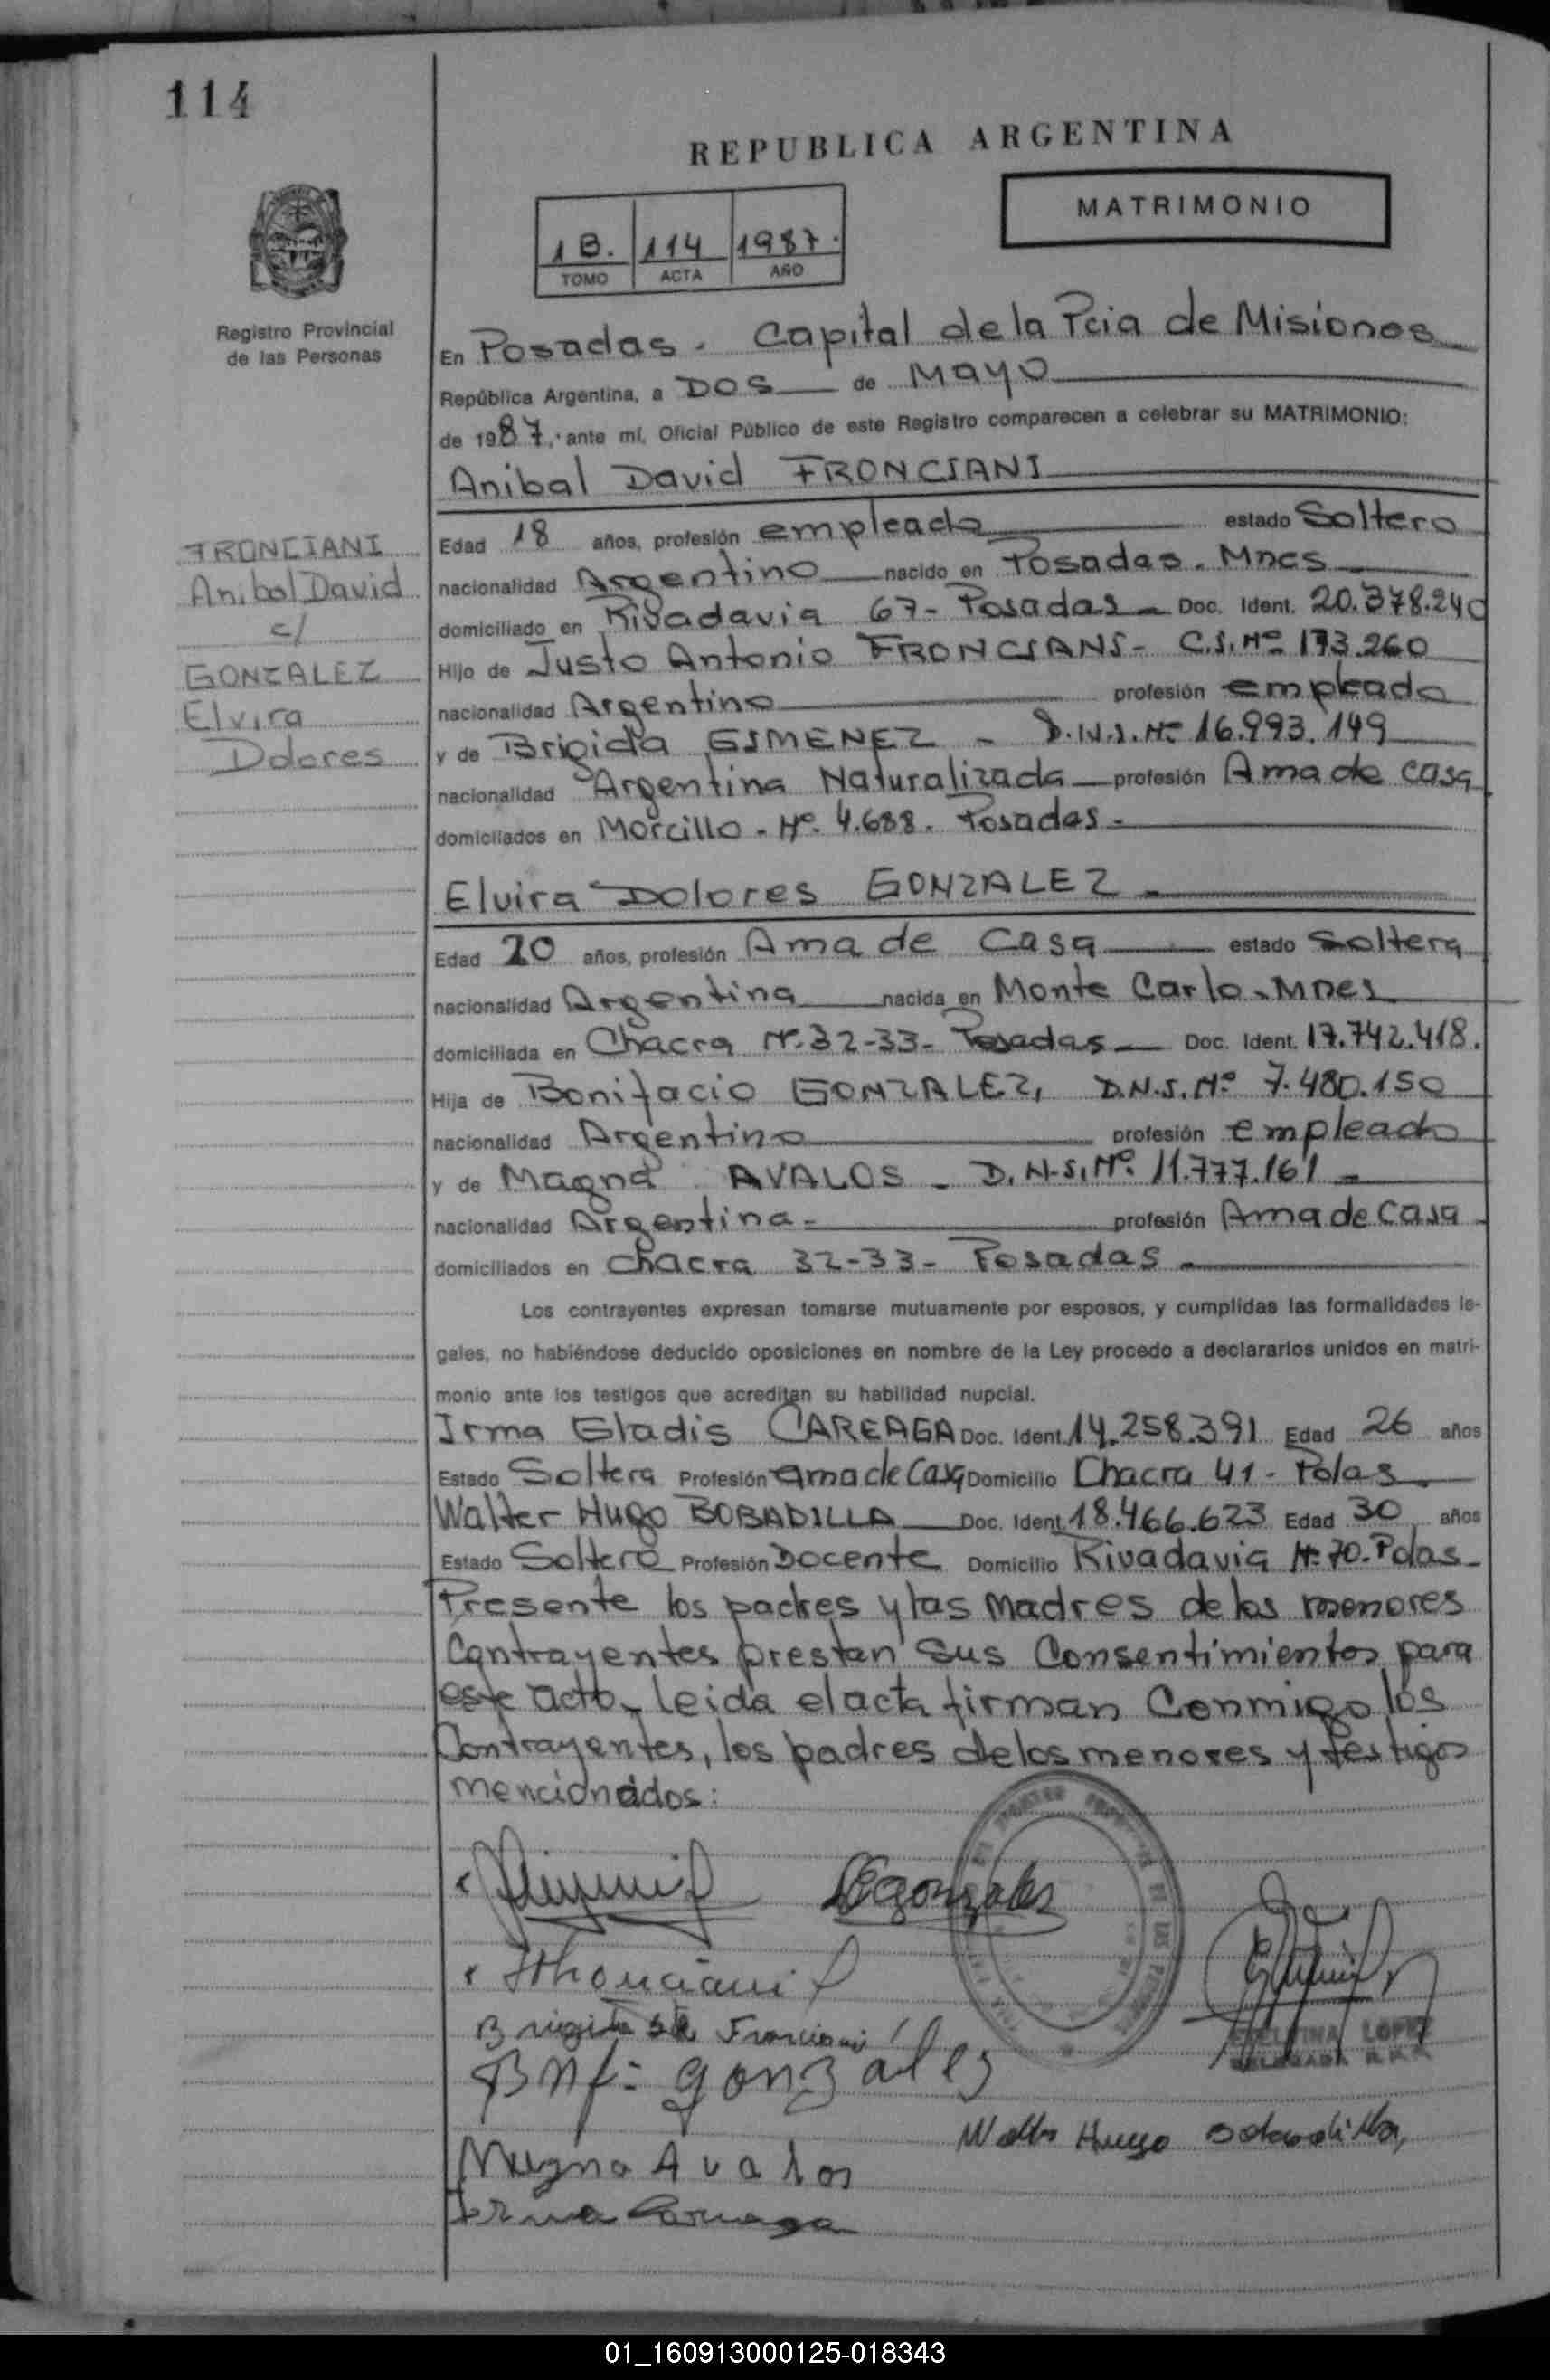 114
REPUBLICA ARGENTINA
MATRIMONIO
1B. 114 1987.
TOMO ACTA AÑO
Registro Provincial
de las Personas
En Posadas. Capital de la Pcia de Misiones
República Argentina, a DOS de Mayo
de 1987. ante mí, Oficial Público de este Registro comparecen a celebrar su MATRIMONIO:
Anibal David FRONCIANI
FRONCIANI
Anibal David
c/
GONZALEZ
Elvira
Dolores
Edad 18 años, profesión empleado estado Soltero
nacionalidad Argentino nacido en Posadas. Mnes
domiciliado en Rivadavia 67- Posadas Doc. Ident. 20.378.240
Hijo de Justo Antonio FRONCIANI- C.I. Nº 173.260
nacionalidad Argentino profesión empleado
y de Brigida GIMENEZ - D.N.I. Nº 16.993.149
nacionalidad Argentina Naturalizada profesión Ama de casa
domiciliados en Morcillo. Nº 4.688. Posadas-
Elvira Dolores GONZALEZ
Edad 20 años, profesión Ama de Casa estado Soltera
nacionalidad Argentina nacida en Monte Carlo-Mnes
domiciliada en Chacra Nº 32-33- Posadas Doc. Ident. 17.742.418.
Hija de Bonifacio GONZALEZ, D.N.I. Nº 7.480.150
nacionalidad Argentino profesión empleado
y de Magna AVALOS - D.N.I. Nº 11.777.161
nacionalidad Argentina- profesión Ama de Casa
domiciliados en chacra 32-33- Posadas
Los contrayentes expresan tomarse mutuamente por esposos, y cumplidas las formalidades le-
gales, no habiéndose deducido oposiciones en nombre de la Ley procedo a declararlos unidos en matri-
monio ante los testigos que acreditan su habilidad nupcial.
Irma Gladis CAREAGA Doc. Ident. 14.258.391 Edad 26 años
Estado Soltera Profesión ama de Casa Domicilio Chacra 41- Pdas
Walter Hugo BOBADILLA Doc. Ident. 18.466.623 Edad 30 años
Estado Soltero Profesión Docente Domicilio Rivadavia Nº 70. Pdas
Presente los padres y las Madres de los menores
Contrayentes prestan sus Consentimientos para
este acto, leida el acta firman Conmigo los
Contrayentes, los padres de los menores y testigos
mencionados:
Gonzales
Fronciani
Bnf: gonzales
Magna Avalos
Walter Hugo Bobadilla
Irma Careaga
LOPEZ
DELEGADA
01_160913000125-018343